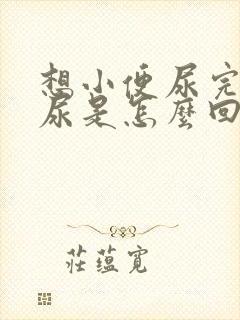 想小便尿完
尿是怎麼回
莊蘊寬